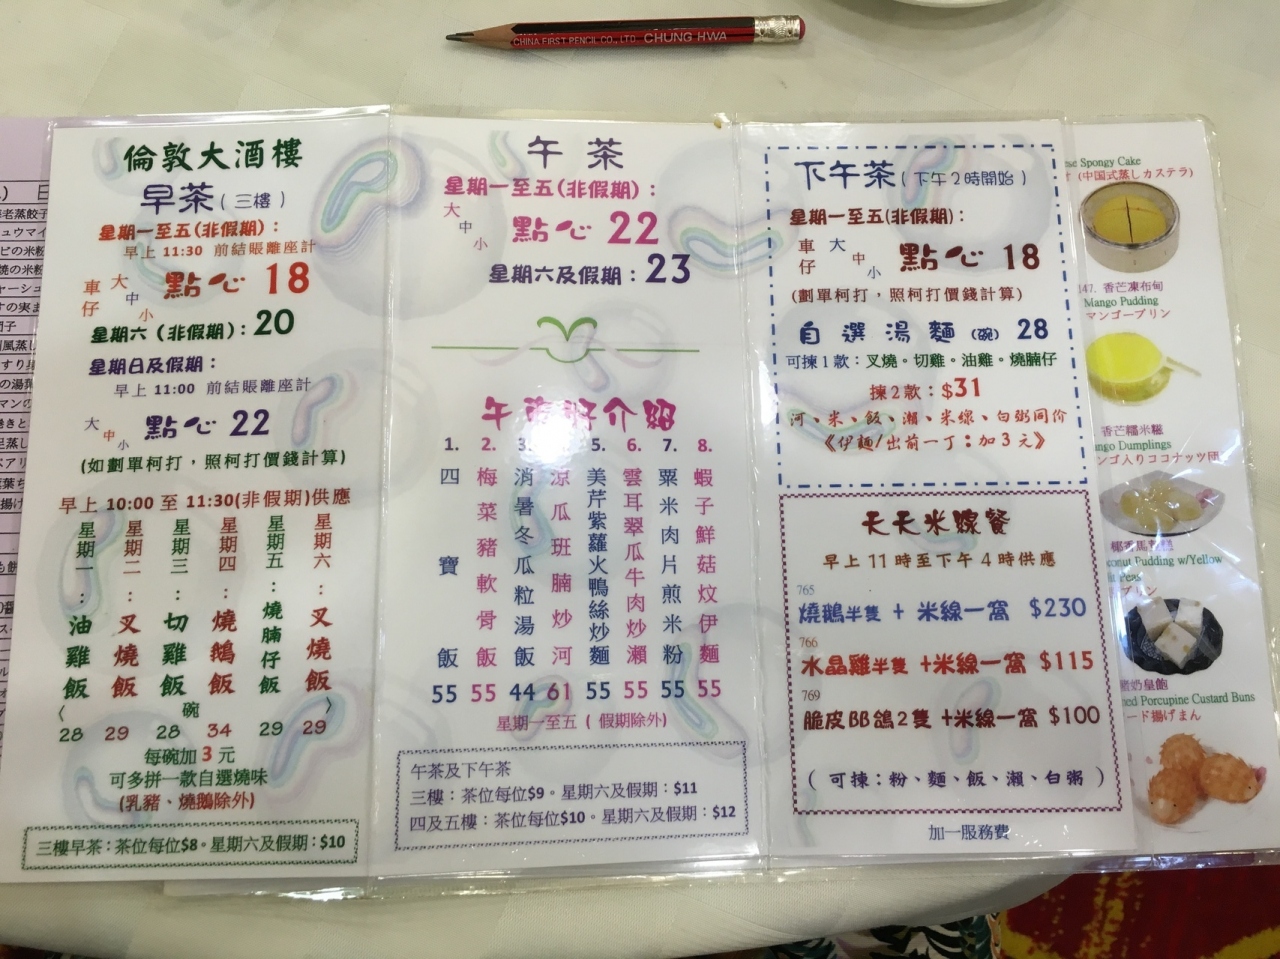 CHINA FIRST PENCIL CO., LTD. CHUNG HWA
倫敦大酒樓
早茶(三樓)
星期一至五(非假期)：
早上 11:30 前結賬離座計
車仔 大 中 小 點心 18
星期六 (非假期)：20
星期日及假期：
早上 11:00 前結賬離座計
大 中 小 點心 22
(如劃單柯打，照柯打價錢計算)
早上 10:00 至 11:30(非假期)供應
星期一：油雞飯
星期二：叉燒飯
星期三：切雞飯
星期四：燒鵝飯
星期五：燒腩仔飯
星期六：叉燒飯
〈 碗 〉
28 29 28 34 29 29
每碗加 3 元
可多拼一款自選燒味
(乳豬、燒鵝除外)
三樓早茶：茶位每位$8。星期六及假期：$10
午茶
星期一至五(非假期)：
大 中 小 點心 22
星期六及假期：23
1. 四寶飯 55
2. 梅菜豬軟骨飯 55
3. 消暑冬瓜粒湯飯 44
涼瓜班腩炒河 61
5. 美芹紫蘿火鴨絲炒麵 55
6. 雲耳翠瓜牛肉炒瀨 55
7. 粟米肉片煎米粉 55
8. 蝦子鮮菇炆伊麵 55
星期一至五 ( 假期除外)
午茶及下午茶
三樓：茶位每位$9。星期六及假期：$11
四及五樓：茶位每位$10。星期六及假期：$12
下午茶(下午2時開始)
星期一至五(非假期)：
車仔 大 中 小 點心 18
(劃單柯打，照柯打價錢計算)
自選湯麵(碗) 28
可揀1款：叉燒。切雞。油雞。燒腩仔
揀2款：$31
河、米、飯、瀨、米線、白粥同價
《伊麵/出前一丁：加3元》
天天米線餐
早上11時至下午4時供應
765
燒鵝半隻 + 米線一窩 $230
766
水晶雞半隻 +米線一窩 $115
769
脆皮BB鴿2隻 +米線一窩 $100
( 可揀：粉、麵、飯、瀨、白粥 )
加一服務費
Spongy Cake
(中国式蒸しカステラ)
147. 香芒凍布甸
Mango Pudding
マンゴープリン
香芒糯米糍
Dumplings
入りココナッツ団
Pudding w/Yellow
Peas
プリン
奶皇飽
Porcupine Custard Buns
ード揚げまん